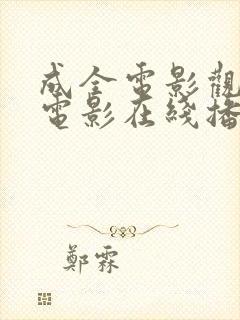 成全電影觀
電影在綫播
鄭霖